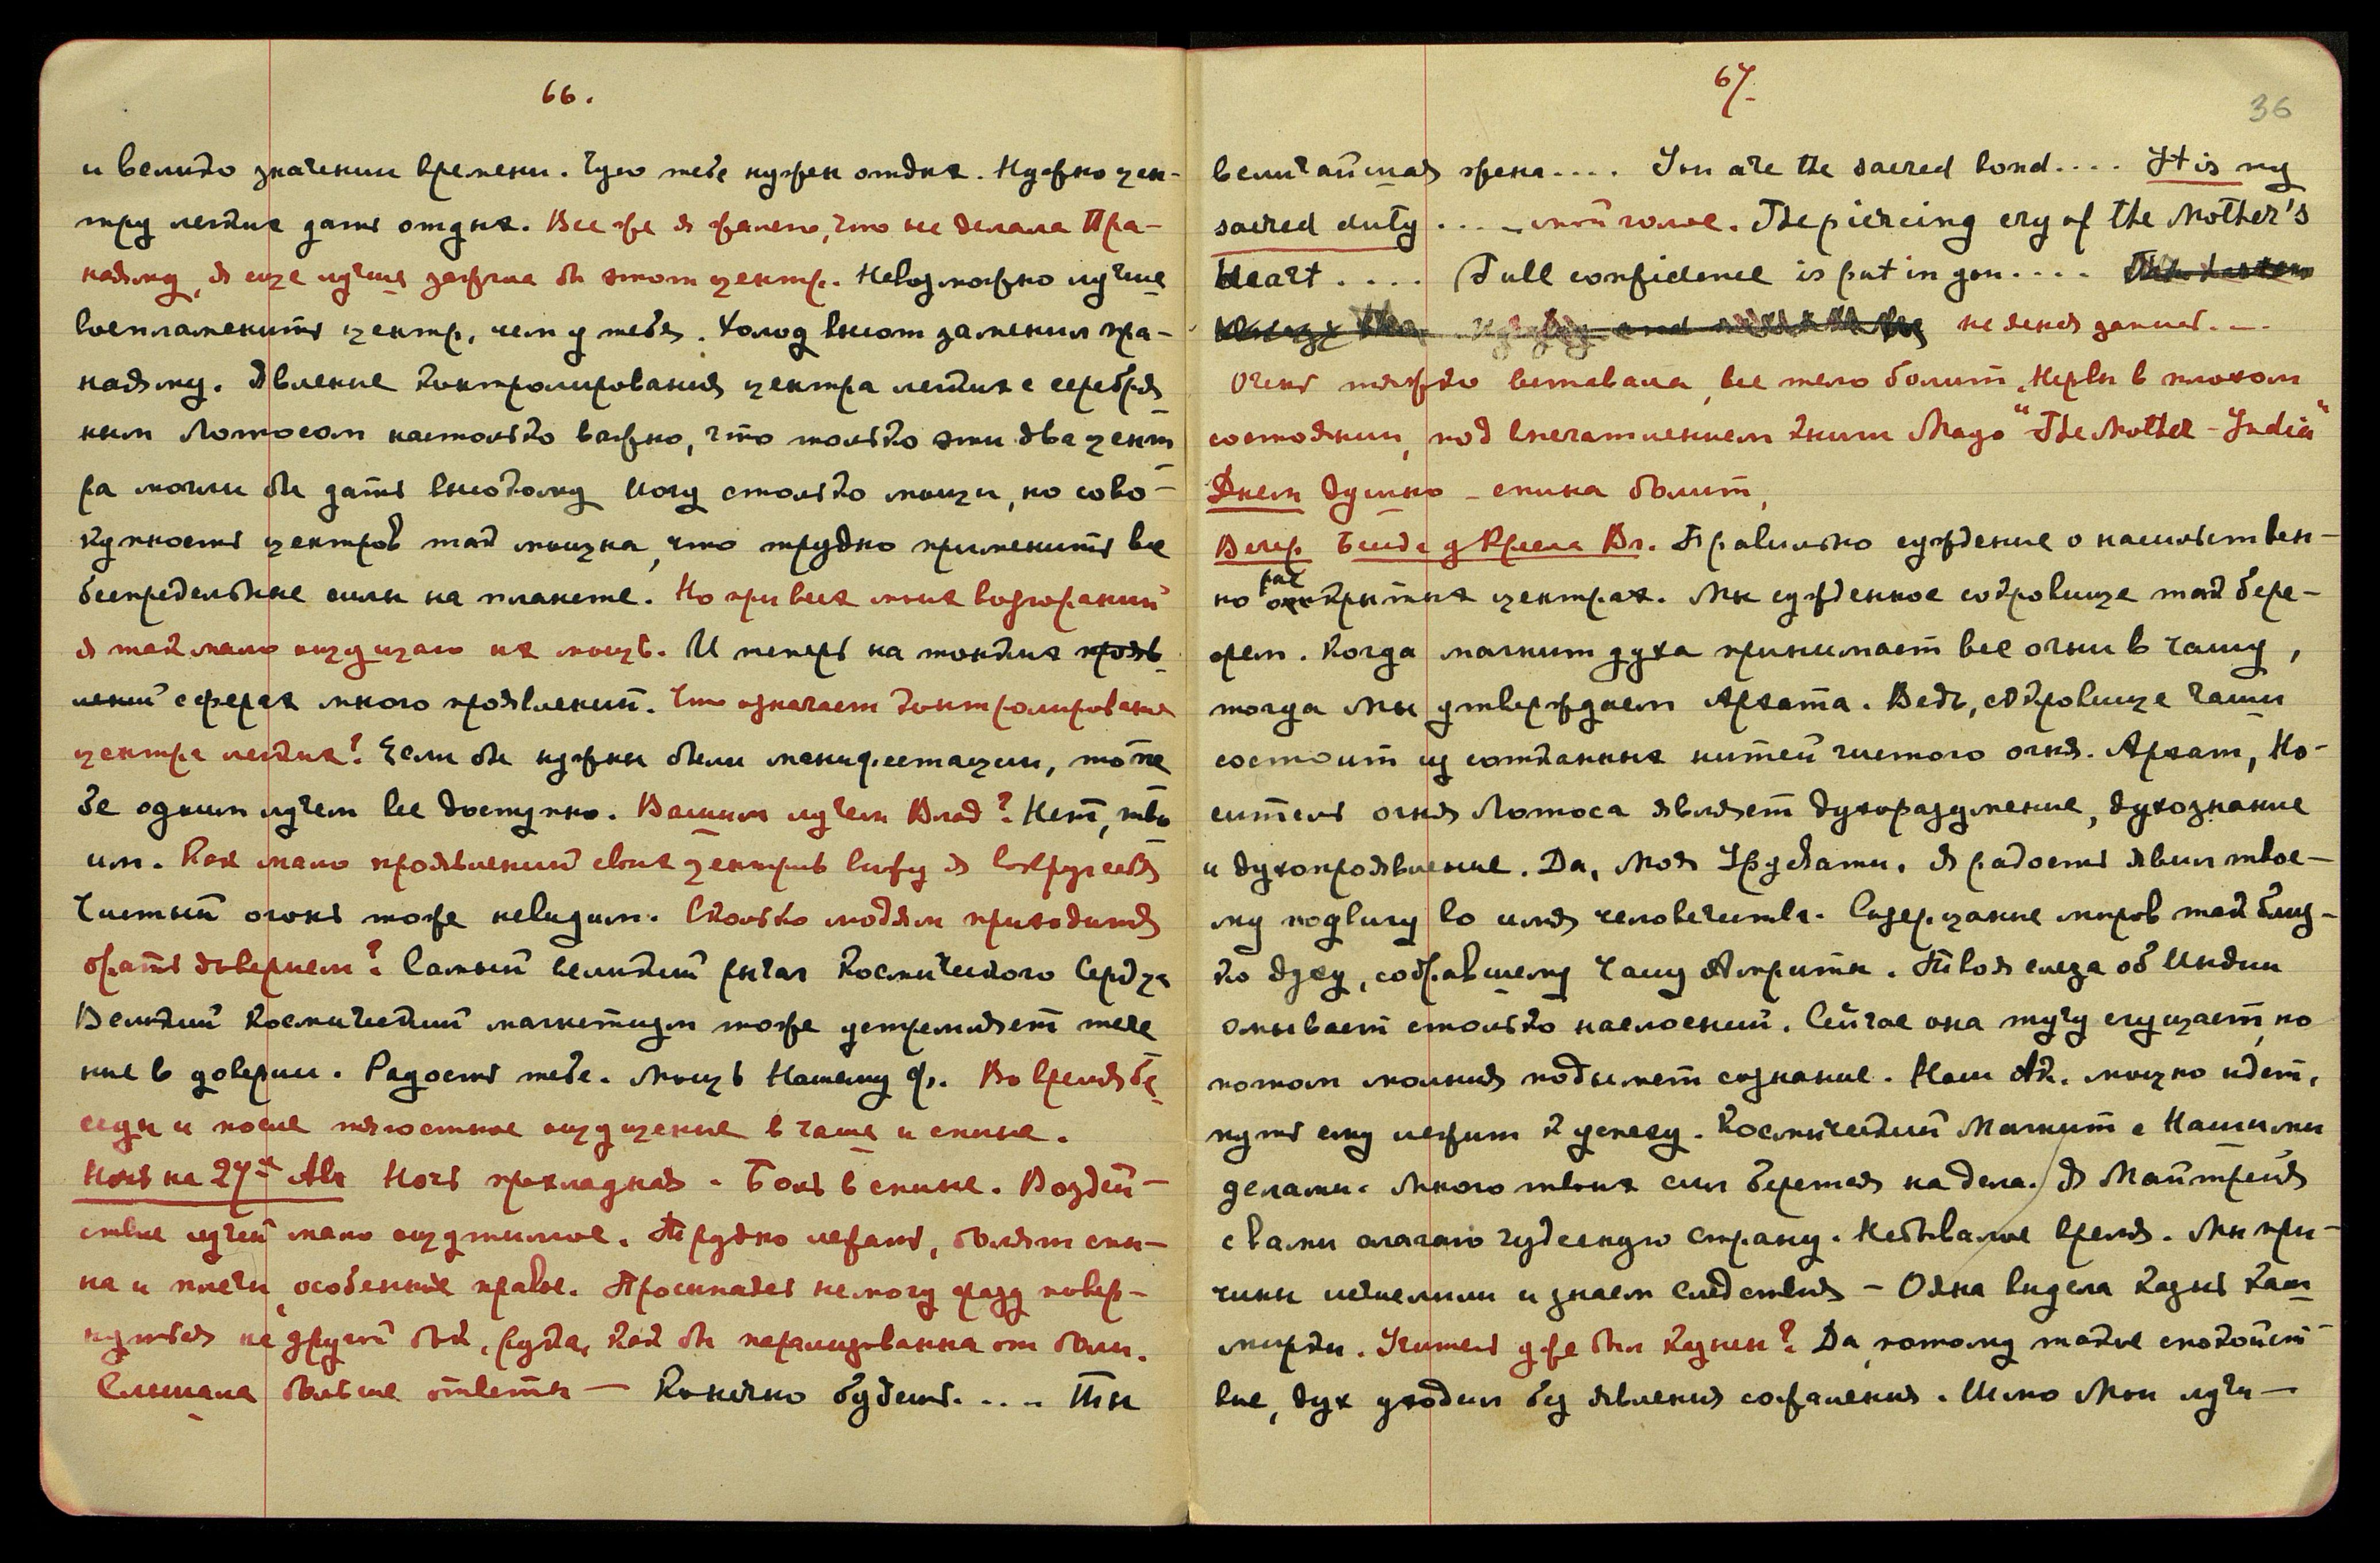 66.
и велико значении времени. Чую тебе нужен отдых. Нужно цен-
тру легких дать отдых. Все же я жалею, что не делала Пра-
наяму, я еще лучше зажгла бы этот центр. Невозможно лучше
воспламенить центр, чем у тебя. Холод высот заменил пра-
наяму. Явление контролирования центра легких с серебря
ным Лотосом настолько важно, что только эти два цент
ра могли бы дать высокому Йогу столько мощи, но сово-
купность центров так мощна, что трудно применить все
беспредельные силы на планете. Но при всех моих возгораний
я так мало ощущаю их мощь. И теперь на тонких прояв
лений сферах много проявлений. Что означает контролирование
центра легких? Если бы нужны были манифестации, то те
бе одним лучем все доступно. Вашим лучем Влад? Нет, тво
им. Как мало проявлений своих центров вижу я вокруг себя
Чистый огонь тоже невидим. Сколько людям приходится
брать доверием? Самый великий рычаг Космического Сердца
Великий Космический магнетизм тоже устремляет тече
ние в доверии. Радость тебе. Мощь Нашему Ф. Во время бе
седы и после тягостное ощущение в чаше и спине.
Ночь на 27-е Авг Ночь прохладная. Боль в спине. Воздей-
ствие лучей мало ощутимое. Трудно лежать, болят спи-
на и плечи, особенно правое. Просыпаясь не могу сразу повер-
нуться на другой бок, рука, как бы парализованна от боли.
Слышала большие ответы — Конечно будешь.... Ты
67.
36
величайшая жена.... You are the sacred bond.... It is my
sacred duty.... мой голос. The piercing cry of the Mother's
Heart.... Full confidence is put in you....
не ясная запись...
Очень тяжко вставала, все тело болит, Нервы в плохом
состоянии, под впечатлением книги Mayo "The Mother-India"
Днем душно - спина болит,
Вечер Беседа у Кресла Вл. Правильно суждение о насильствен-
но раскрытых центрах. Мы сужденное сокровище так бере-
жем. Когда магнит духа принимает все огни в чашу,
тогда Мы утверждаем Архата. Ведь, сокровище чаши
состоит из сотканных нитей чистого огня. Архат, Но-
ситель огня Лотоса являет духоразумение, духознание
и духопроявление. Да, Моя Урусвати. Я радость явил твое-
му подвигу во имя человечества. Содержание миров так близ-
ко духу, собравшему Чашу Амриты. Твоя слеза об Индии
омывает столько наслоений. Сейчас она тучу сгущает, но
потом молния подымет сознание. Наш Ак. мощно идет,
путь ему лежит к успеху. Космический Магнит с Нашими
делами. Много твоих сил берется на дела. Я Майтрейя
с вами слагаю чудесную Страну. Небывалое время. Мы при-
чины исчислили и знаем следствия — Ояна видела казнь Каш
мирки. Учитель уже был казнен? Да, потому такое спокойст
вие, дух уходил без явления сожаления. Шлю Мои лучи —